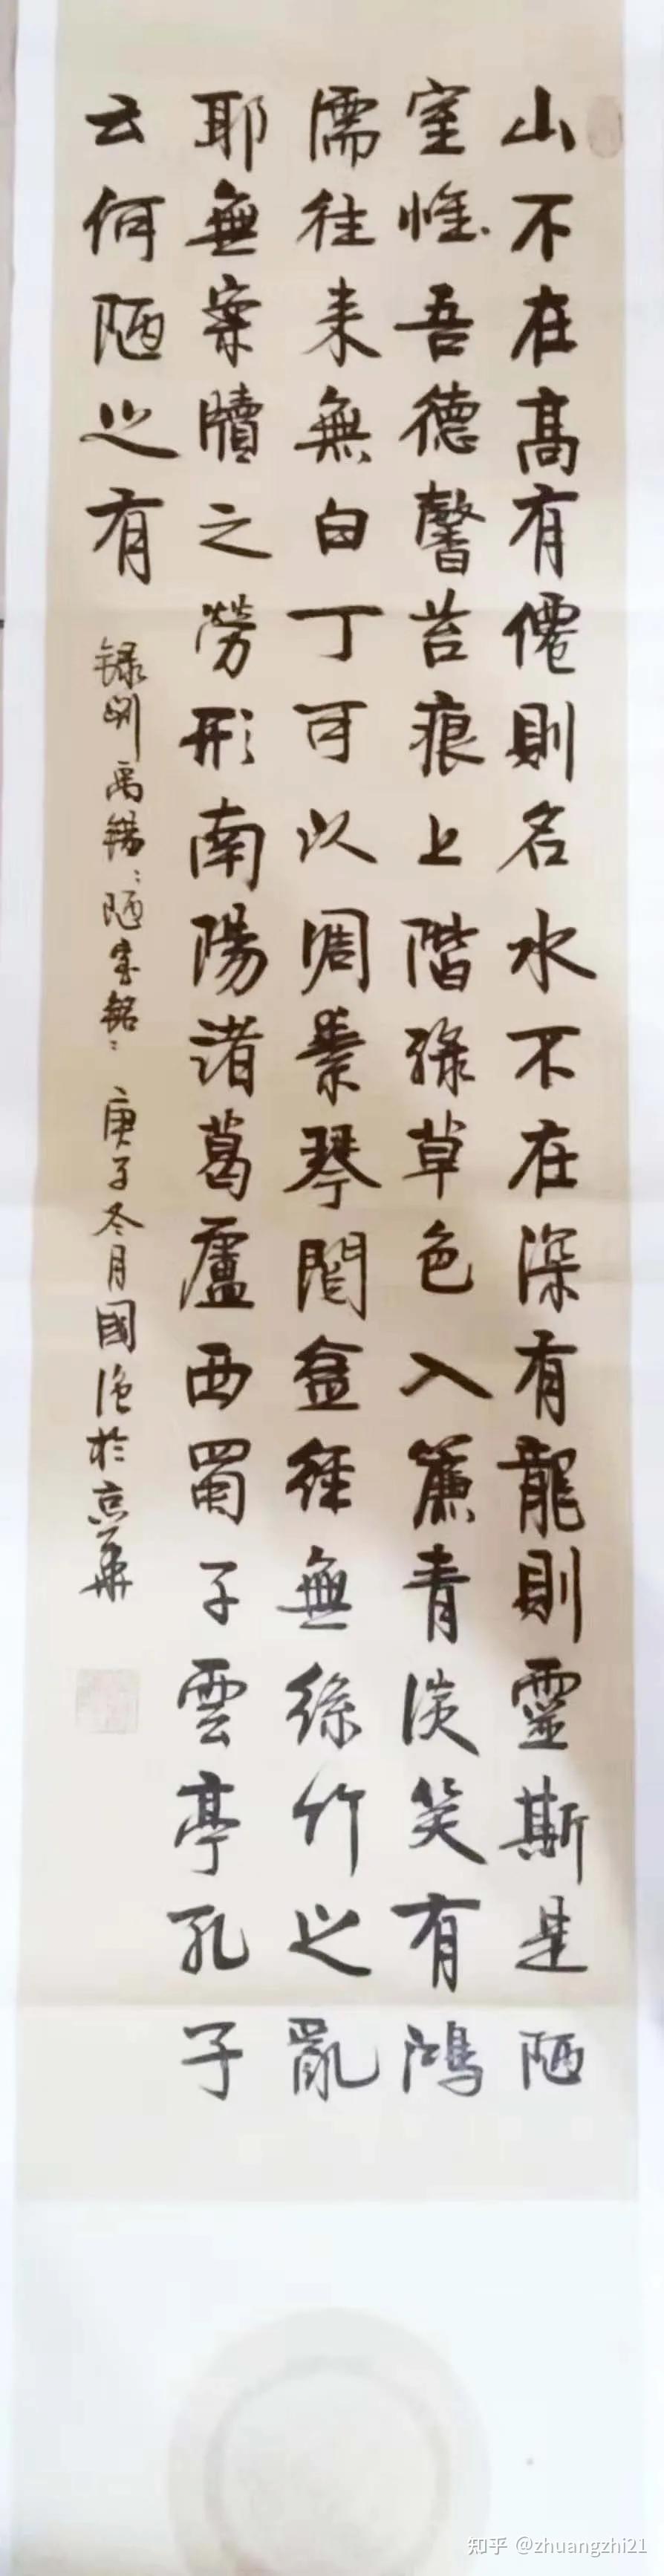 山不在高有僊則名水不在深有龍則靈斯是陋
室惟吾德馨苔痕上階綠草色入簾青談笑有鴻
濡往来無白丁可以調素琴閱金經無絲竹之亂
耶無案牘之勞形南陽諸葛廬西蜀子雲亭孔子
云何陋之有
録刘禹锡陋室銘 庚子冬月國於京華
知乎 @zhuangzhi21